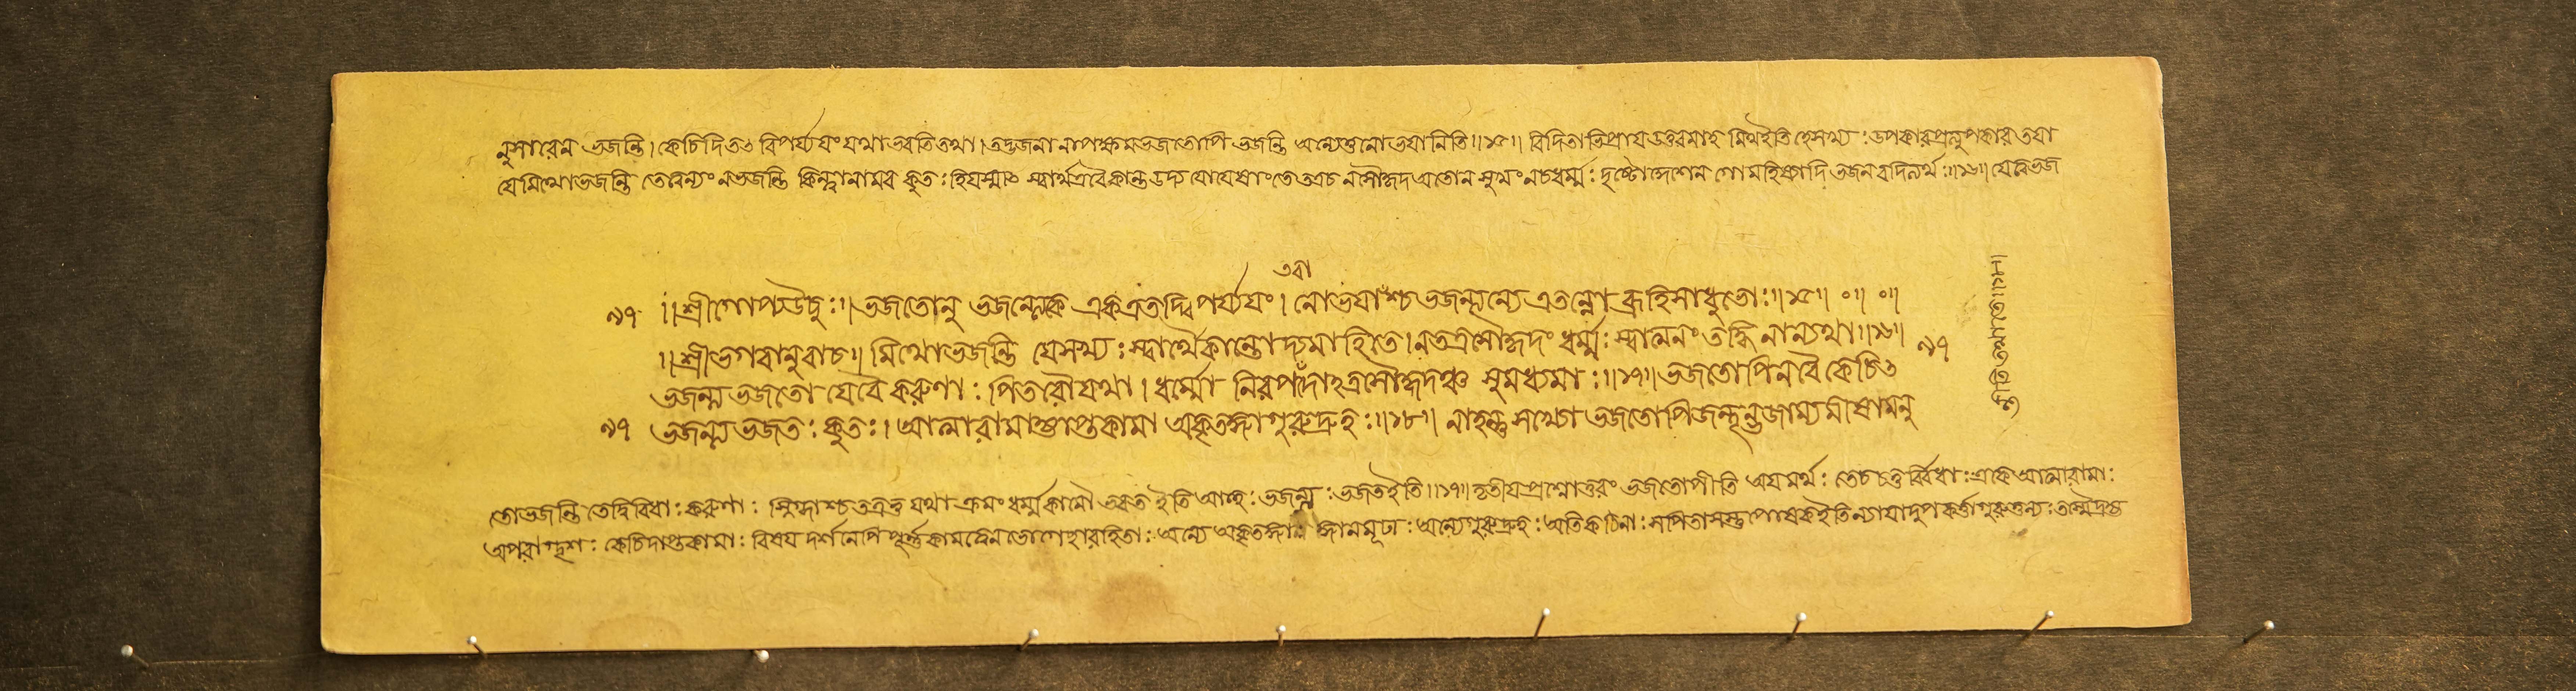 নুসারেন ভজন্তি। কেচিদিতও বিপর্য্যযং যথা ভবতি তথা। তদ্ভজনা নাপক্ষমভজতোপি ভজন্তি অন্যেতুনোভযানিতি॥১৫॥ বিদিতাভিপ্রায উত্তরমাহ মিথইতি হেসখ্য: উপকারপ্রত্যুপকার তযা
যে মিথোভজন্তি তেবন্যং নভজন্তি কিন্ত্বাত্মানামব কুত: হিযস্মাৎ স্বার্থএবৈকান্ত উদ্য মোযেষাংতে তত্রচ নসৌহৃদ অতোন সুখং নচধর্ম্ম: দৃষ্টোদ্দেশেন গোমহিষ্যাদি ভজন বদিত্যর্থ:॥১৬॥ যেত্বভজ
তবা
৯৭ ॥শ্রীগোপ্যউচু:॥ভজতোনু ভজন্ত্যেক একএতদ্বিপর্য্যযং। নোভযাংশ্চ ভজন্ত্যন্যে এতন্নো ব্রূহিসাধুভো:॥১৫॥ ০॥ ০॥
॥শ্রীভগবানুবাচ॥ মিথোভজন্তি যেসখ্য: স্বার্থৈকান্তোদ্যমাহিতে। নতত্রসৌহৃদং ধর্ম্ম: স্বাত্মনং তদ্ধি নান্যথা॥১৬॥ ৯৭
ভজন্ত্য ভজতো যেবৈ করুণা: পিতরৌযথা। ধর্ম্মো নিরপাদোহত্রসৌহৃদঞ্চ সুমধ্যমা:॥১৭॥ ভজতোপিনবৈ কেচিৎ
৯৭ ভজন্ত্য ভজত: কুত:। আত্মারামাহ্যাপ্তকামা অকৃতজ্ঞাগুরুদ্রুহ:॥১৮॥ নাহন্তু সখ্যো ভজতোপিজন্তূন্ভজাম্যমীষামনু
বৃত্তিবৃত্তযে॥১৯॥
তোভজন্তি তেদ্বিবিধা: করুণা: স্নিগ্ধাশ্চ তত্রতু যথা ক্রমং ধর্ম্মকামৌ ভবত ইতি আহ: ভজন্ত্য: ভজতইতি॥১৭॥ তৃতীযপ্রশ্নোত্তরং ভজতোপীতি অযমর্থ: তেচচতুর্ব্বিধা: একে আত্মারামা:
অপরাদৃশ: কেচিদাপ্তকামা: বিষয দর্শনেপি পূর্ণকামত্বেন ভোগেহারাহিতা: অন্যে অকৃতজ্ঞা জ্ঞানমূঢা: অন্যেগুরুদ্রুহ: অতিকঠিনা: সপিতাযস্তু পোষকইতিন্যাযাদুপকর্ত্তাগুরুতুল্য: তস্মৈদ্রুহ্য